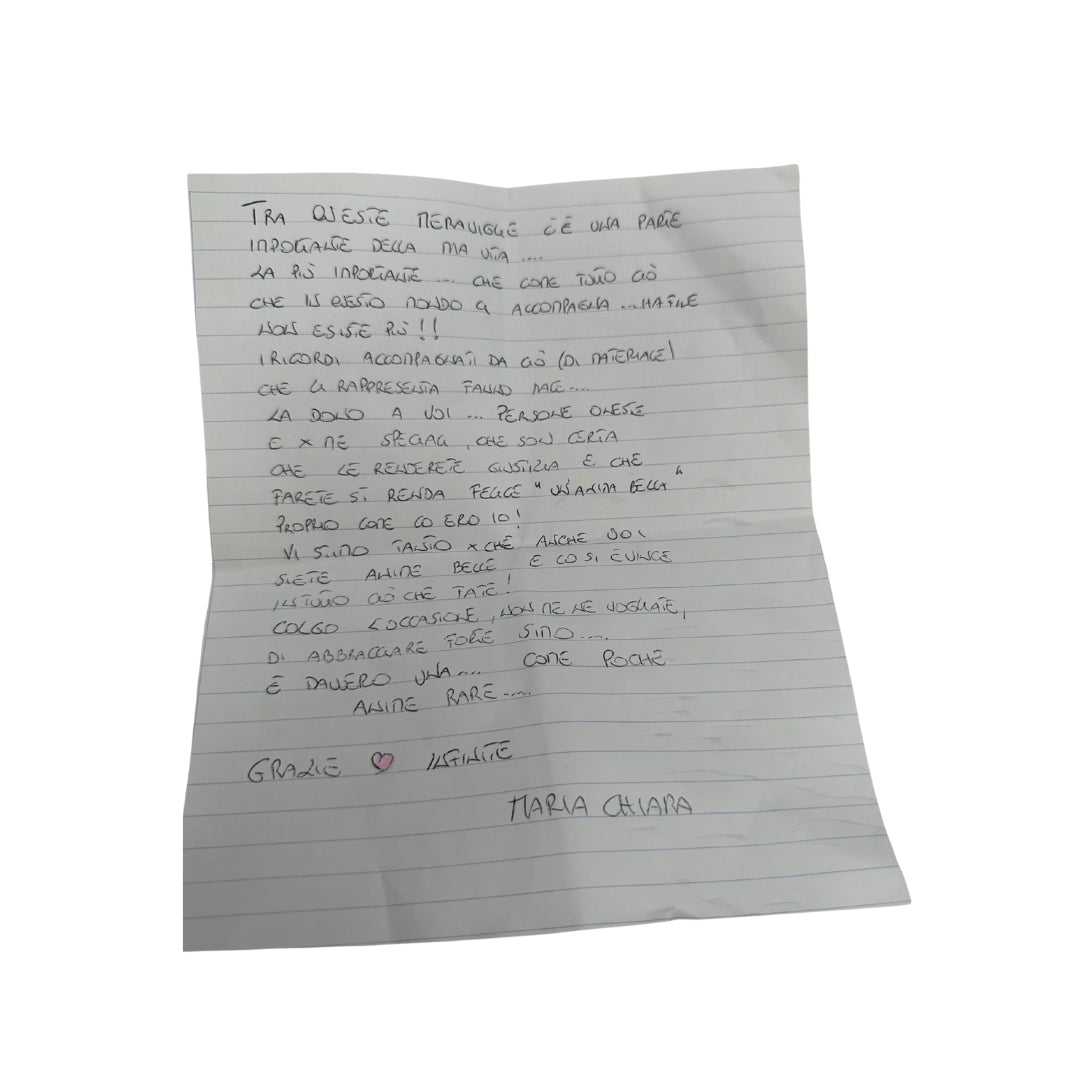 TRA QUESTE MERAVIGLIE C'È UNA PARTE
IMPORTANTE DELLA MIA VITA ....
LA PIÙ IMPORTANTE .... CHE COME TUTTO CIÒ
CHE IN QUESTO MONDO CI ACCOMPAGNA ... HA FINE
NON ESISTE PIÙ!!
I RICORDI ACCOMPAGNATI DA CIÒ (DI MATERIALE)
CHE LI RAPPRESENTA FANNO MALE....
LA DONO A VOI ... PERSONE ONESTE
E X ME SPECIALI, CHE SON CERTA
CHE LE RENDERETE GIUSTIZIA E CHE
FARETE SÌ RENDA FELICE "UN'ANIMA BELLA"
PROPRIO COME LO ERO IO!
VI STIMO TANTO XCHÉ ANCHE VOI
SIETE ANIME BELLE E LO SI EVINCE
IN TUTTO CIÒ CHE FATE!
COLGO L'OCCASIONE, NON ME NE VOGLIATE,
DI ABBRACCIARE FORTE
È DAVVERO UNA.... COME POCHE
ANIME RARE....
GRAZIE INFINITE
MARIA CHIARA